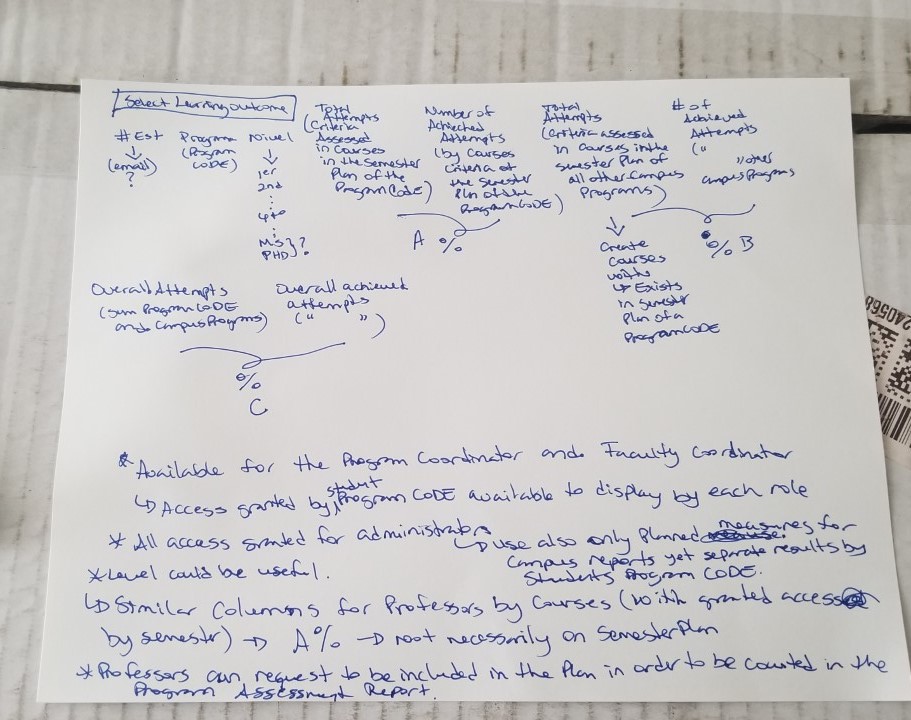 Select Learning outcome
# Est
(email)
?
Program
(Program
CODE)
Nivel
1er
2nd
:
4to
:
MS } ?
PHD
Total
Attempts
(Criteria
Assessed
in Courses
in the Semester
Plan of the
Program Code)
Number of
Achieched
Attempts
(by Courses
Criteria of
the Semester
Plan of the
Program CODE)
A %
Total
Attempts
(Criteria assessed
in Courses in the
semester Plan of
all other Campus
Programs)
# of
Achieved
Attempts
("
" other
campus Programs
% B
Create
Courses
with
Exists
in Semester
Plan of a
Program CODE
Overall Attempts
(sum Program CODE
and Campus Programs)
Overall achieved
attempts
(" ")
%
C
* Available for the Program Coordinator and Faculty Coordinator
↳ Access granted by student Program CODE available to display by each role
* All access granted for administrators
↳ use also only Planned measures for
Campus reports yet separate results by
Students Program CODE.
* Level could be useful.
↳ Similar Columns for Professors by Courses (with granted access
by semester) → A% → not necessarily on Semester Plan
* Professors can request to be included in the Plan in order to be counted in the
Program Assessment Report.
240568